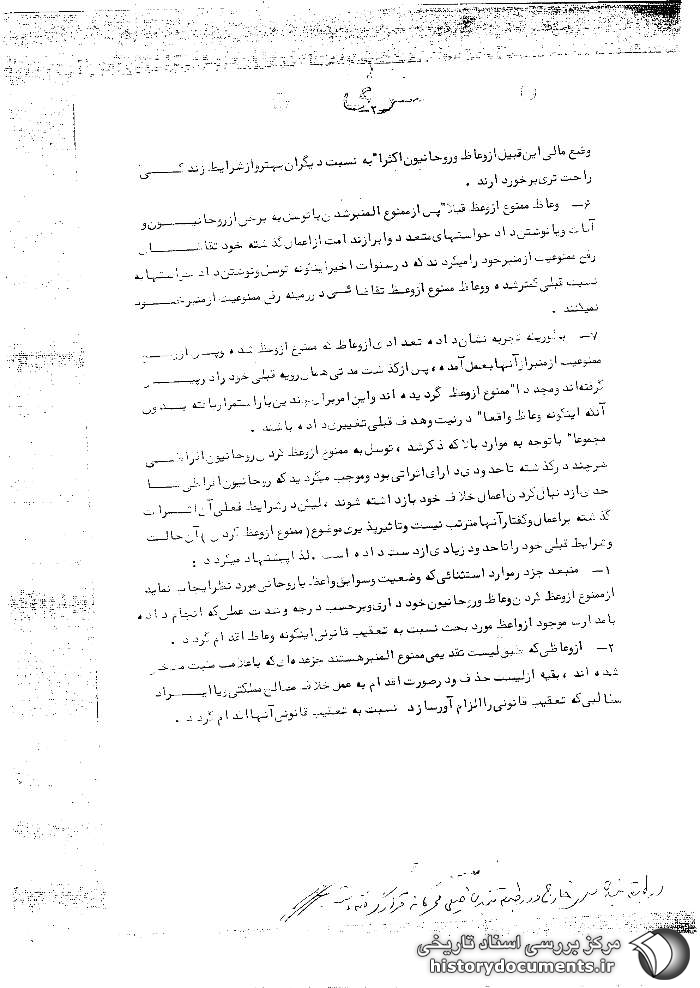 سری
۳
وضع مالی این قبیل از وعاظ و روحانیون اکثرا" به نسبت دیگران بهتر و از شرایط زندگـــی
راحت تری برخوردارند .
۶ــ وعاظ ممنوع از وعظ قبلا" پس از ممنوع المنبر شدن با توسل به برخی از روحانیـــون و
آیات و یا نوشتن درخواستهای متعدد و ابراز ندامت از اعمال گذشته خود تقاضـــای
رفع ممنوعیت از منبر خود را میکردند که در سنوات اخیر اینگونه توسل و نوشتن درخواستها به
نسبت قبلی کمتر شده و وعاظ ممنوع از وعظ تقاضائی در زمینه رفع ممنوعیت از منبر خـــود
نمیکنند .
۷ــ بطوریکه تجربه نشان داده تعدادی از وعاظ که ممنوع از وعظ شده و پس از رفـــع
ممنوعیت از منبر از آنها بعمل آمده ، پس از گذشت مدتی همان رویه قبلی خود را در پیـــش
گرفته اند و مجددا" ممنوع از وعظ گردیده اند و این امر برای چندین بار استمرار یافته بـــدون
آنکه اینگونه وعاظ واقعا" در نیت و هدف قبلی تغییری داده باشند .
مجموعا" با توجه به موارد بالا که ذکر شد ، توسل به ممنوع از وعظ کردن روحانیون افراطـــی
هرچند در گذشته تا حدودی دارای اثراتی بود و موجب میگردید که روحانیون افراطی تـــا
حدی از دنبال کردن اعمال خلاف خود بازداشته شوند ، لیکن در شرایط فعلی آن اثـــرات
گذشته بر اعمال و گفتار آنها مترتب نیست و تاثیر پذیری موضوع (ممنوع از وعظ کردن) آن حالت
و شرایط قبلی خود را تا حدود زیادی از دست داده است . لذا پیشنهاد میگردد :
۱ــ منبعد جز در موارد استثنائی که وضعیت و سوابق واعظ یا روحانی مورد نظر ایجاب نماید
از ممنوع از وعظ کردن وعاظ و روحانیون خودداری و برحسب درجه و شدت عملی که انجام داده
با مدارک موجود از واعظ مورد بحث نسبت به تعقیب قانونی اینگونه وعاظ اقدام گردد .
۲ــ از وعاظی که طبق لیست تقدیمی ممنوع المنبر هستند جز عده ای که با علامت مثبت مشخص
شده اند ، بقیه از لیست حذف و در صورت اقدام به عمل خلاف مصالح مملکتی و یا ایـــراد
مطالبی که تعقیب قانونی را الزام آور سازد نسبت به تعقیب قانونی آنها اقدام گردد .
مرکز بررسی اسناد تاریخی
historydocuments.ir